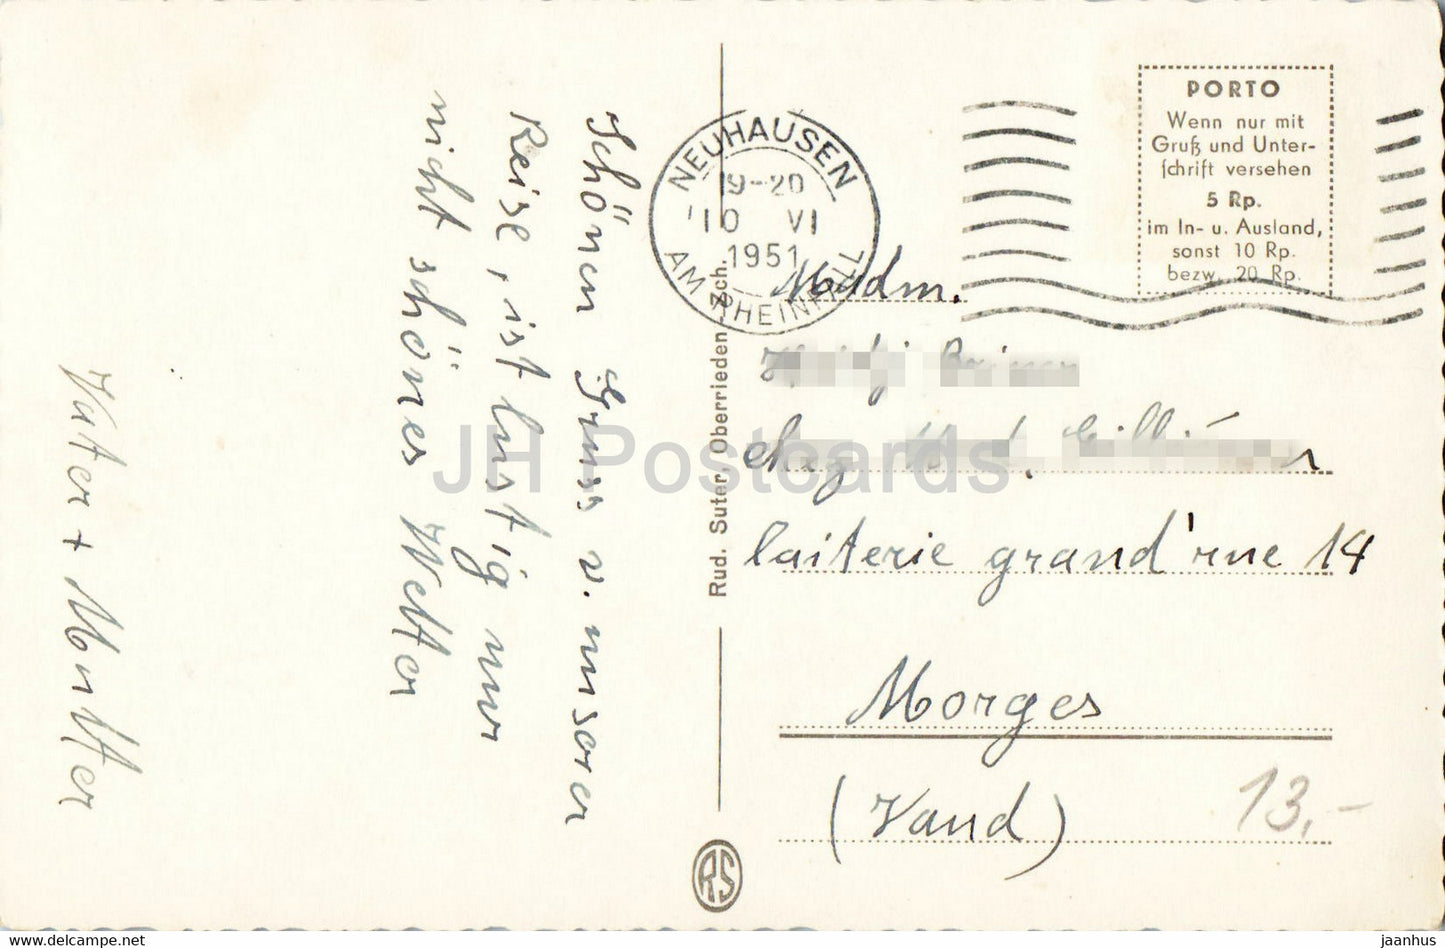 Schönen Gruss v. unserer
Reise, ist lustig nur
nicht schönes Wetter
Vater + Mutter
NEUHAUSEN
19-20
10 VI
1951
AM RHEINFALL
PORTO
Wenn nur mit
Gruß und Unter-
schrift versehen
5 Rp.
im In- u. Ausland,
sonst 10 Rp.
bezw. 20 Rp.
Madm.
chez
laiterie grand'rue 14
Morges
(Vaud)
13,-
Rud. Suter, Oberrieden-Zch.
RS
JH Postcards
www.delcampe.net
jaanhus